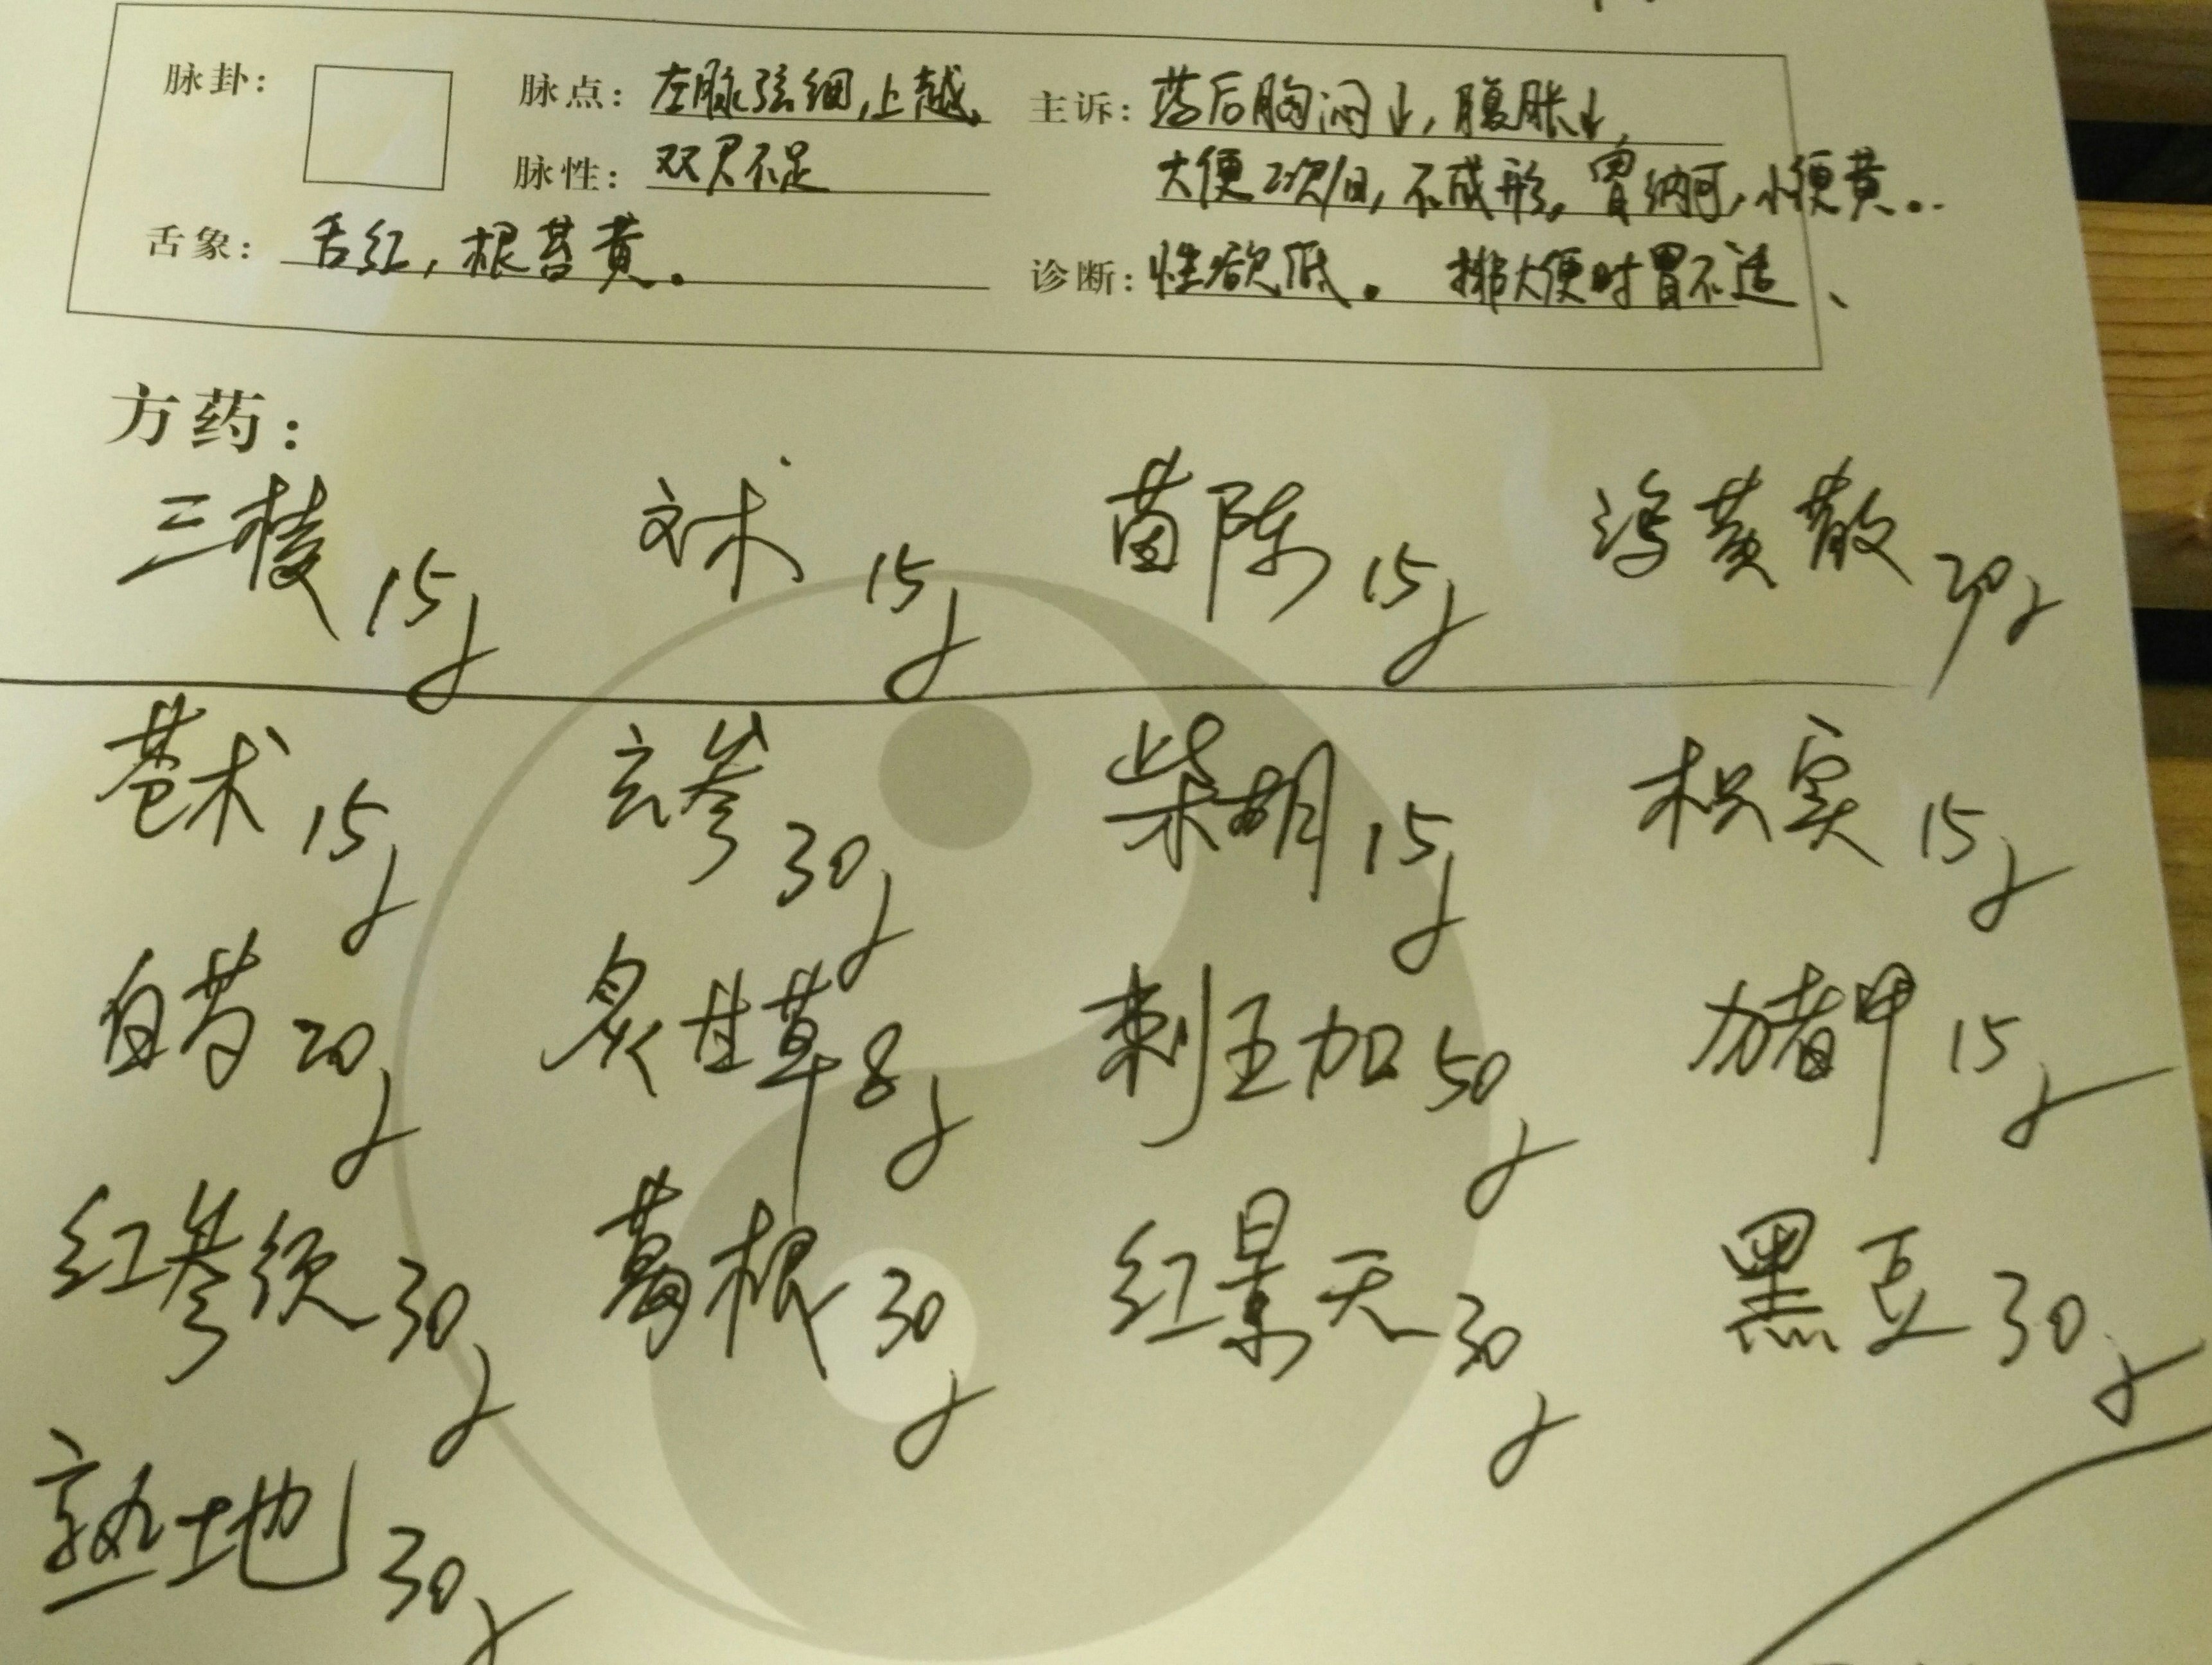 脉卦： 脉点：左脉弦细，上越。 主诉：药后胸闷↓，腹胀↓，
脉性：双尺不足 大便2次/日，不成形，胃纳可，小便黄。
舌象：舌红，根苔黄。 诊断：性欲低。 排大便时胃不适、
方药：
三棱15g 文术15g 茵陈15g 泻黄散20g
苍术15g 玄参30g 柴胡15g 枳实15g
白芍20g 炙甘草8g 刺五加50g 猪甲15g
红参须30g 葛根30g 红景天30g 黑豆30g
熟地30g